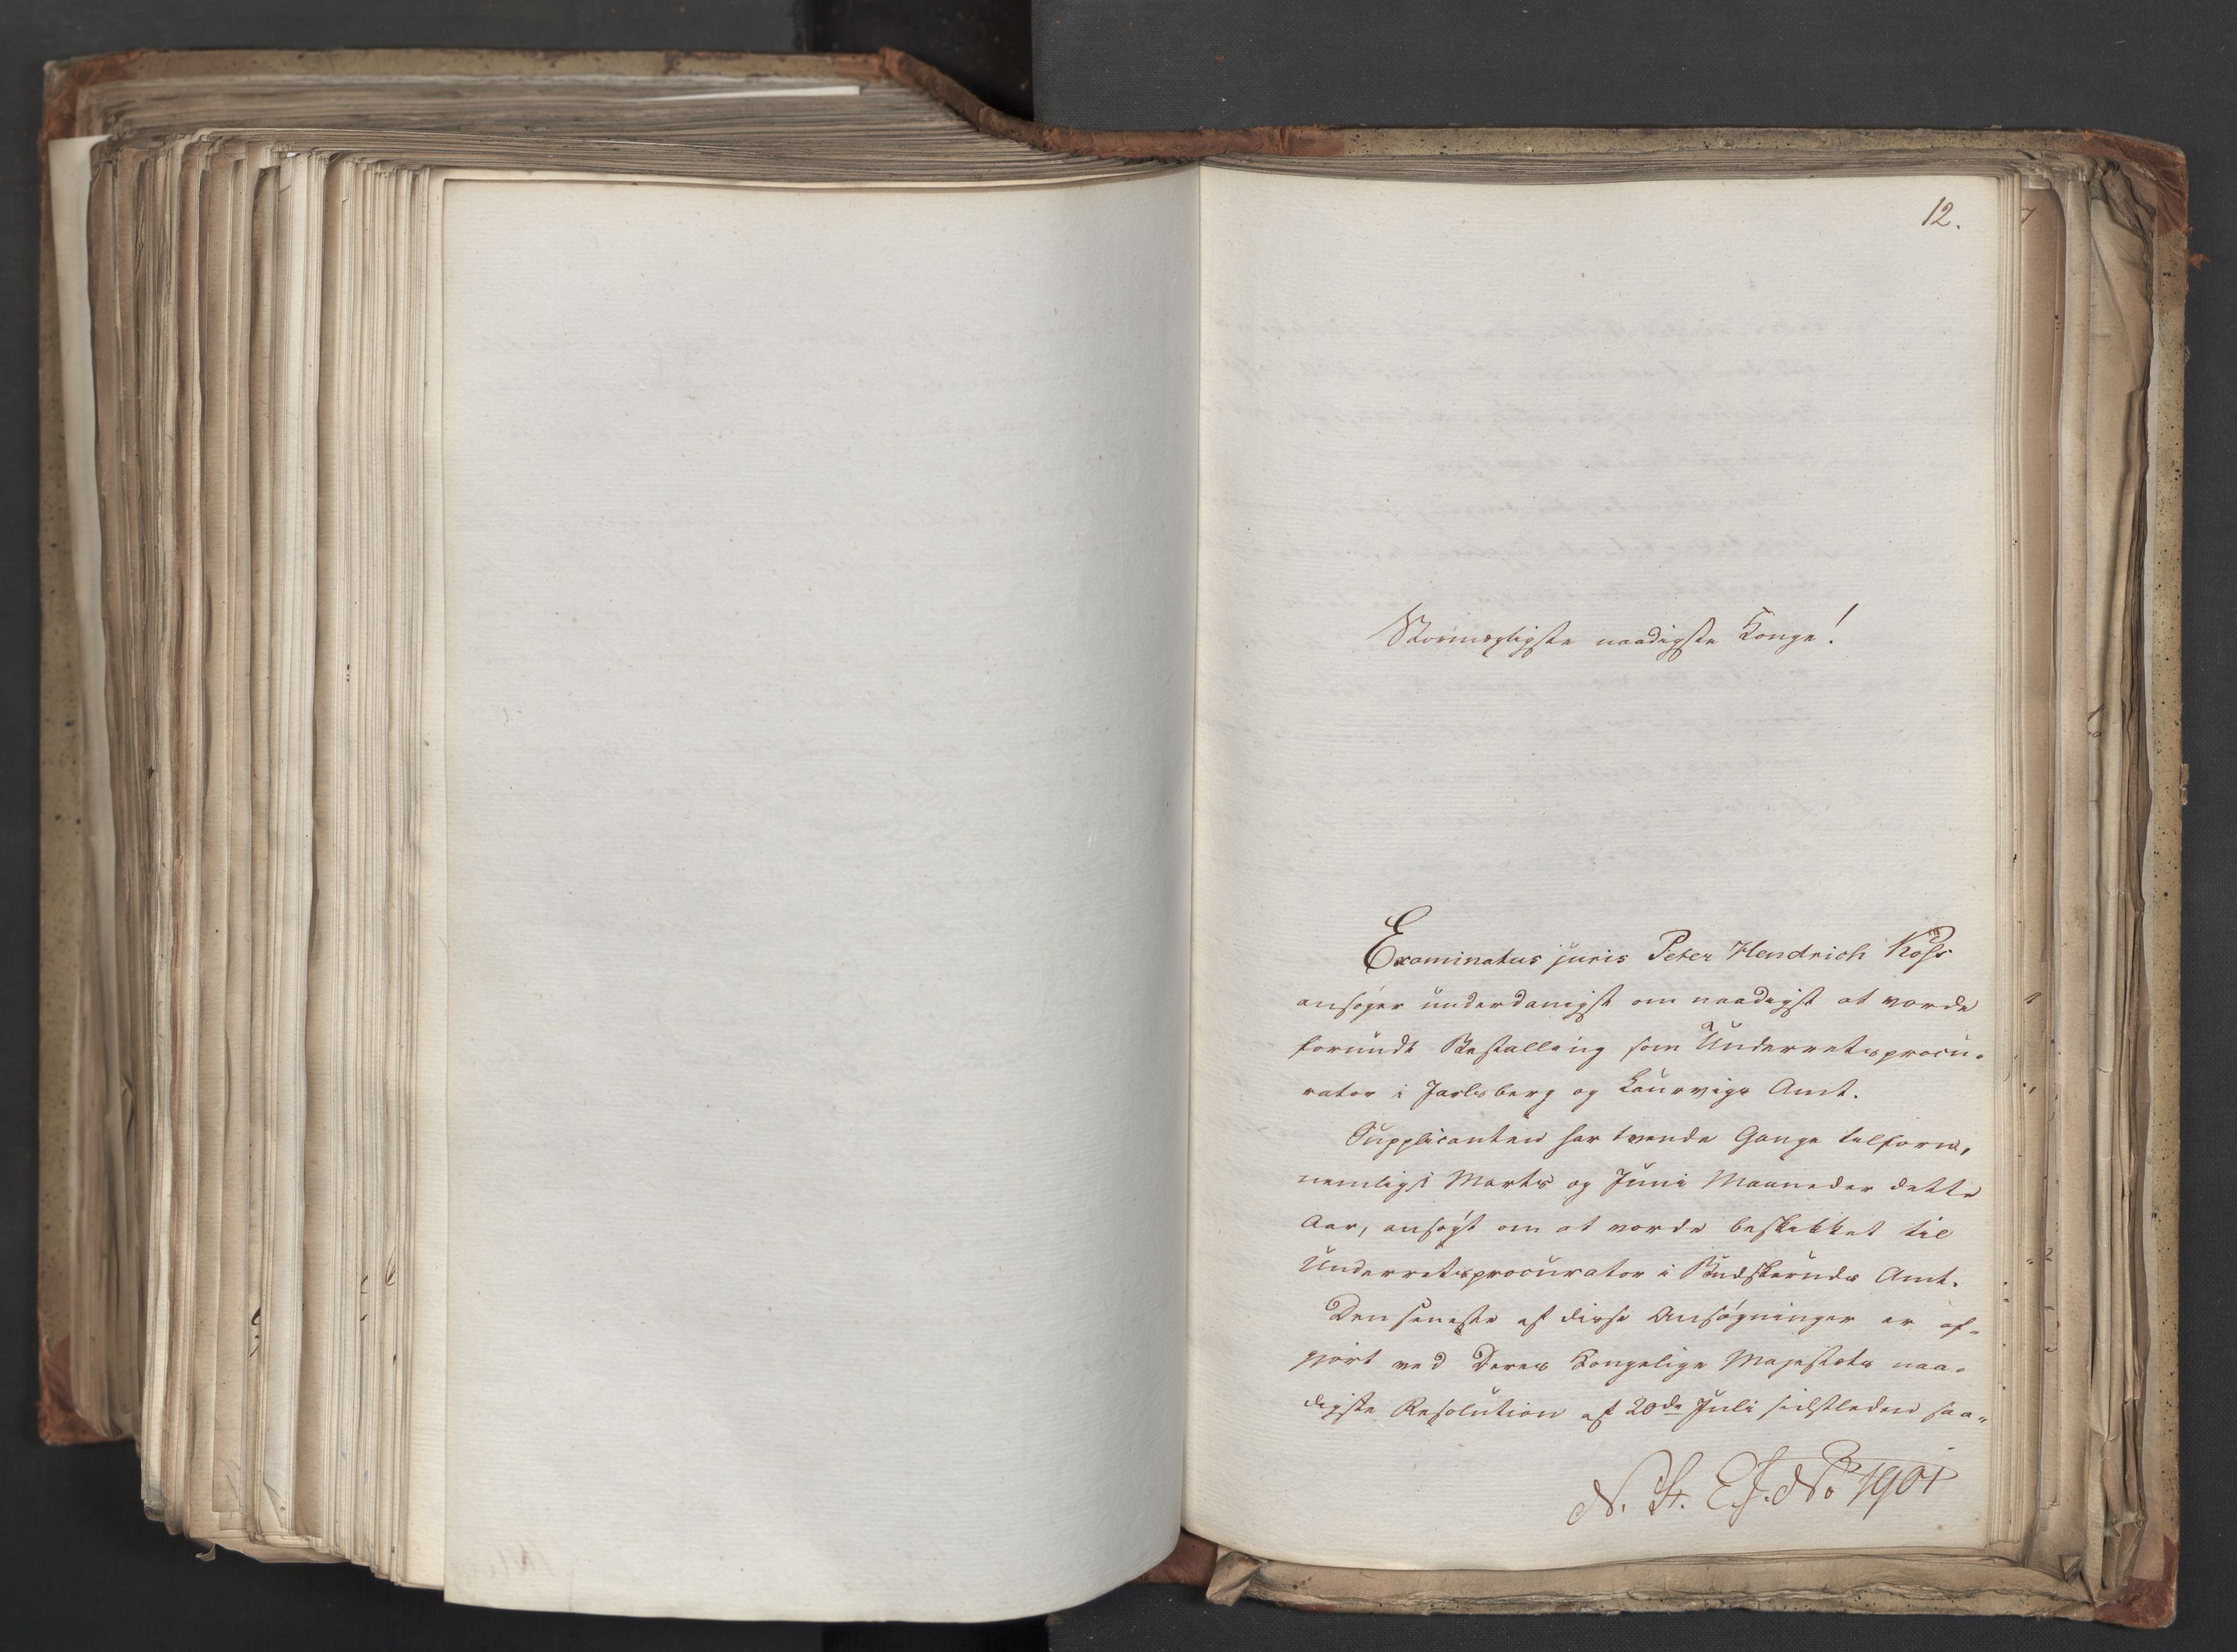 12.
Stormægtigste naadigste Konge!
Examinatus juris Peter Hendrich Koss
ansøger underdanigst om naadigst at vorde
forundt Bestalling som Underretsprocu-
rator i Jarlsberg og Laurvigs Amt.
Supplicanten har tvende Gange tilforn,
nemlig i Marts og Juni Maaneder dette
Aar, ansøgt om at vorde beskikket til
Underretsprocurator i Budskeruds Amt.
Den seneste af disse Ansøgninger er af-
gjort ved Deres Kongelige Majestæts naa-
digste Resolution af 20de Juli sidstleden saa-
N. St. E. J. No 1901